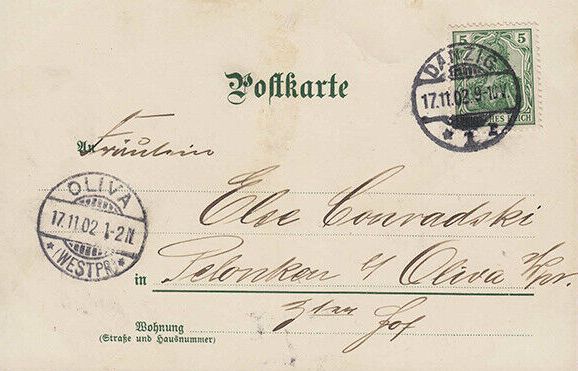 5 5
DEUTSCHES REICH
DANZIG
17.11.02.9-10V.
* 1 z.
Postkarte
An
Fräulein
OLIVA
17.11.02 1-2N.
* (WESTPR.) *
Else Conradski
in Pelonken b/ Oliva Wpr.
Hof
Wohnung
(Straße und Hausnummer)